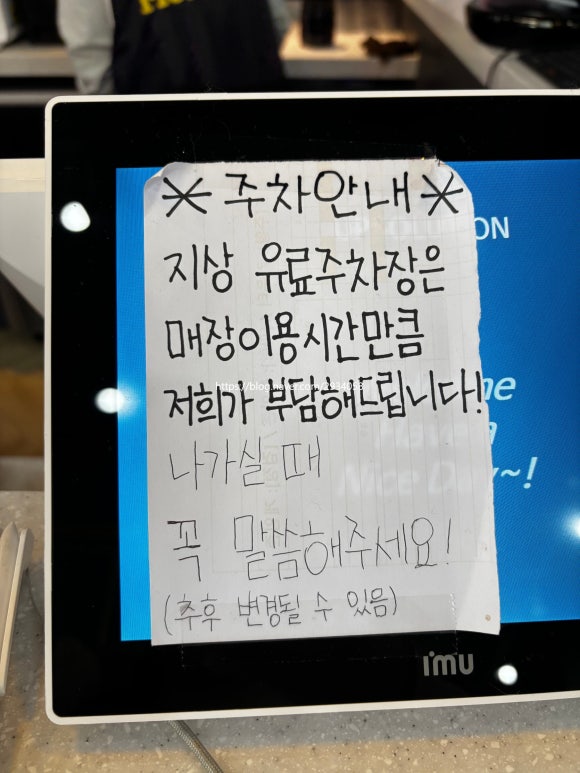 ※ 주차안내 ※
지상 유료주차장은
매장이용시간만큼
저희가 부남해드립니다!
나가실 때
꼭 말씀해주세요!
(추후 변경될 수 있음)
https://blog.naver.com/2934058
ON
Nice D y~!
imu